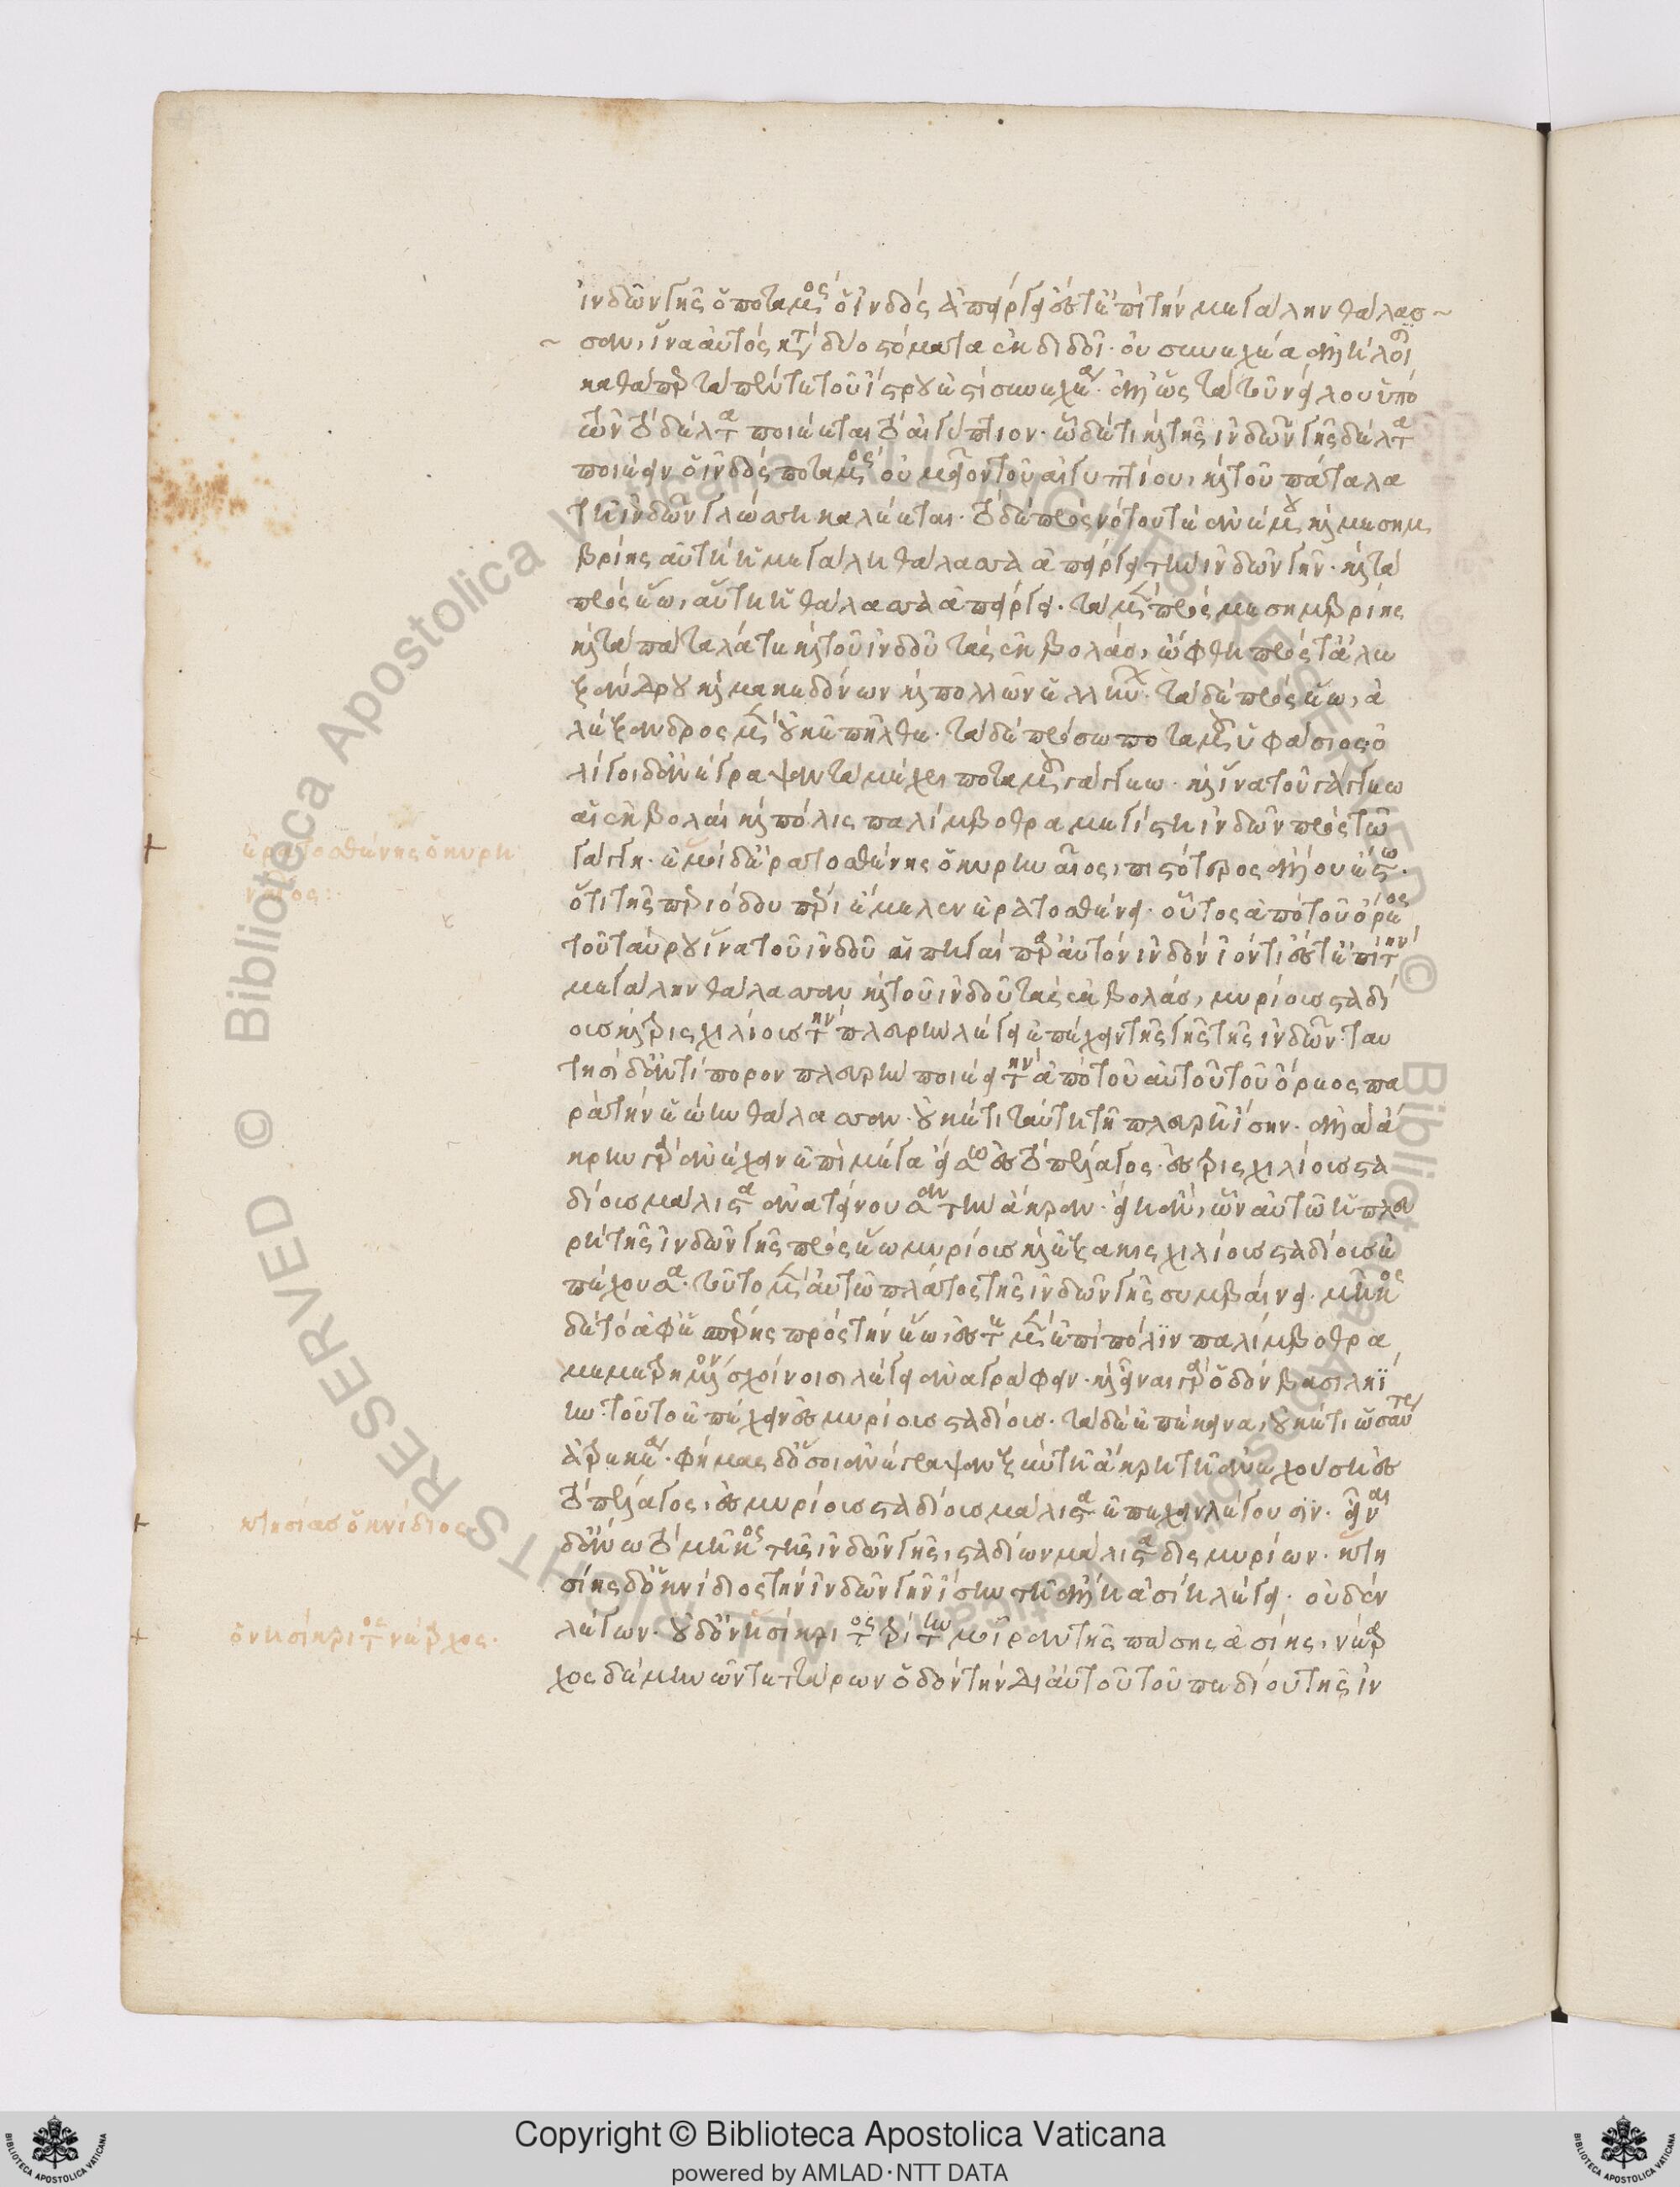 ἰνδῶν γῆς ὁ ποταμὸς ὁ ἰνδὸς ἀπείργει ἔστε ἐπὶ τὴν μεγάλην θάλασ~
~ σαν, ἵνα αὐτὸς κατὰ δύο στόματα ἐκδιδοῖ. οὐ συνεχέα ἀλλήλοισι
καθάπερ τὰ πέντε τοῦ ἴστρου ἐστὶ συνεχέα. ἀλλ' ὡς τὰ τοῦ νείλου ὑπό
των τὸ δέλτα ποιέεται τὸ αἰγύπτιον. ὧδέ τι καὶ τῆς ἰνδῶν γῆς δέλτα
ποιέειν ὁ ἰνδὸς ποταμὸς οὐ μεῖον τοῦ αἰγυπτίου, καὶ τοῦ πάταλα
τῆ ἰνδῶν γλώσση καλέεται. τὸ δὲ πρὸς νότου τε ἀνέμου καὶ μεσημ
βρίης αὐτὴ ἡ μεγάλη θάλασσα ἀπείργει τὴν ἰνδῶν γῆν. καὶ τὰ
πρὸς ἕω, αὕτη ἡ θάλασσα ἀπείργει. τὰ μὲν πρὸς μεσημβρίης
κατὰ πάταλά τε καὶ τοῦ ἰνδοῦ τὰς ἐκβολάς, ὤφθη πρός τε ἀλε
ξάνδρου καὶ μακεδόνων καὶ πολλῶν ἑλλήνων. τὰ δὲ πρὸς ἕω, ἀ
λέξανδρος μὲν οὐκ ἐπῆλθε. τὰ δὲ πρόσω ποταμοῦ ὑφάσιος· ὀ
λίγοι δὲ ἀνέγραψαν τὰ μέχρι ποταμοῦ γάγγεω. καὶ ἵνα τοῦ γάγγεω
αἱ ἐκβολαὶ καὶ πόλις παλίμβοθρα μεγίστη ἰνδῶν πρὸς τῶ
γάγγη. ἐμοὶ δὲ ἐρατοσθένης ὁ κυρηναῖος, πιστότερος ἄλλου ἔστω.
ὅτι τῆς περιόδου πέρι ἔμελεν ἐρατοσθένει. οὗτος ἀπὸ τοῦ ὄρεος
τοῦ ταύρου ἵνα τοῦ ἰνδοῦ αἱ πηγαὶ παρ' αὐτὸν ἰνδὸν ἰόντι ἔστε ἐπὶ τὴν
μεγάλην θάλασσαν καὶ τοῦ ἰνδοῦ τὰς ἐκβολάς, μυρίοισι σταδί
οισι καὶ τρισχιλίοισι τὴν πλευρὴν λέγει ἐπέχειν τῆς γῆς τῆς ἰνδῶν. ταυ
τησὶ δὲ ἀντίπορον πλευρὴν ποιέει τὴν ἀπὸ τοῦ αὐτοῦ τοῦ ὄρεος πα
ρὰ τὴν ἑώην θάλασσαν. οὐκέτι ταύτη τῆ πλευρῆ ἴσην. ἀλλὰ ἄ
κρην γὰρ ἀνέχειν ἐπὶ μέγα εἴσω ἐς τὸ πέλαγος. ἐς τρισχιλίοισι στα
δίοισι μάλιστα ἀνατείνουσαν τὴν ἄκραν. εἴη ἂν, ὧν αὐτῶ ἡ πλευ
ρὴ τῆς ἰνδῶν γῆς πρὸς ἕω μυρίοισι καὶ ἑξακισχιλίοισι σταδίοισι ἐ
πέχουσα. τοῦτο μὲν αὐτῶ πλάτος τῆς ἰνδῶν γῆς συμβαίνει. μῆκος
δὲ τὸ ἀφ' ἑσπέρης πρὸς τὴν ἕω, ἔστε μὲν ἐπὶ πόλιν παλίμβοθρα
μεμετρημένον σχοίνοισι λέγει ἀναγράφειν. καὶ εἶναι γὰρ ὁδὸν βασιληΐ
ην. τοῦτο ἐπέχειν ἐς μυρίοισι σταδίοισι. τὰ δὲ ἐπέκεινα, οὐκέτι ὡσαύτως
ἀτρεκέα. φήμας δὲ ὅσοι ἀνέγραψαν ξὺν τῆ ἄκρη τῆ ἀνεχούση ἐς
τὸ πέλαγος, ἐς μυρίοισι σταδίοισι μάλιστα ἐπέχειν λέγουσιν. εἶναι
δὲ ἂν ὦ τὸ μῆκος τῆς ἰνδῶν γῆς, σταδίων μάλιστα δισμυρίων. κτη
σίης δὲ ὁ κνίδιος τὴν ἰνδῶν γῆν ἴσην τῆ ἄλλη ἀσίη λέγει. οὐδὲν
λέγων. οὐδὲ ὀνησίκριτος τρίτην μοῖραν τῆς πάσης ἀσίης, νέαρ
χος δὲ μηνῶν τεττάρων ὁδὸν τὴν δι' αὐτοῦ τοῦ πεδίου τῆς ἰν
ἐρατοσθένης ὁ κυρη
ναῖος:
κτησίας ὁ κνίδιος
ὀνησίκριτος νέαρχος.
Copyright © Biblioteca Apostolica Vaticana
powered by AMLAD·NTT DATA